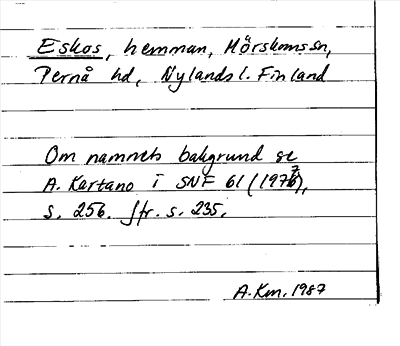 Eskos, hemman, Mörskomssn,
Pernå hd, Nylands l. Finland
Om namnets bakgrund se
A. Kartano i SNF 61 (1977),
s. 256. Jfr. s. 235.
A.Km. 1987